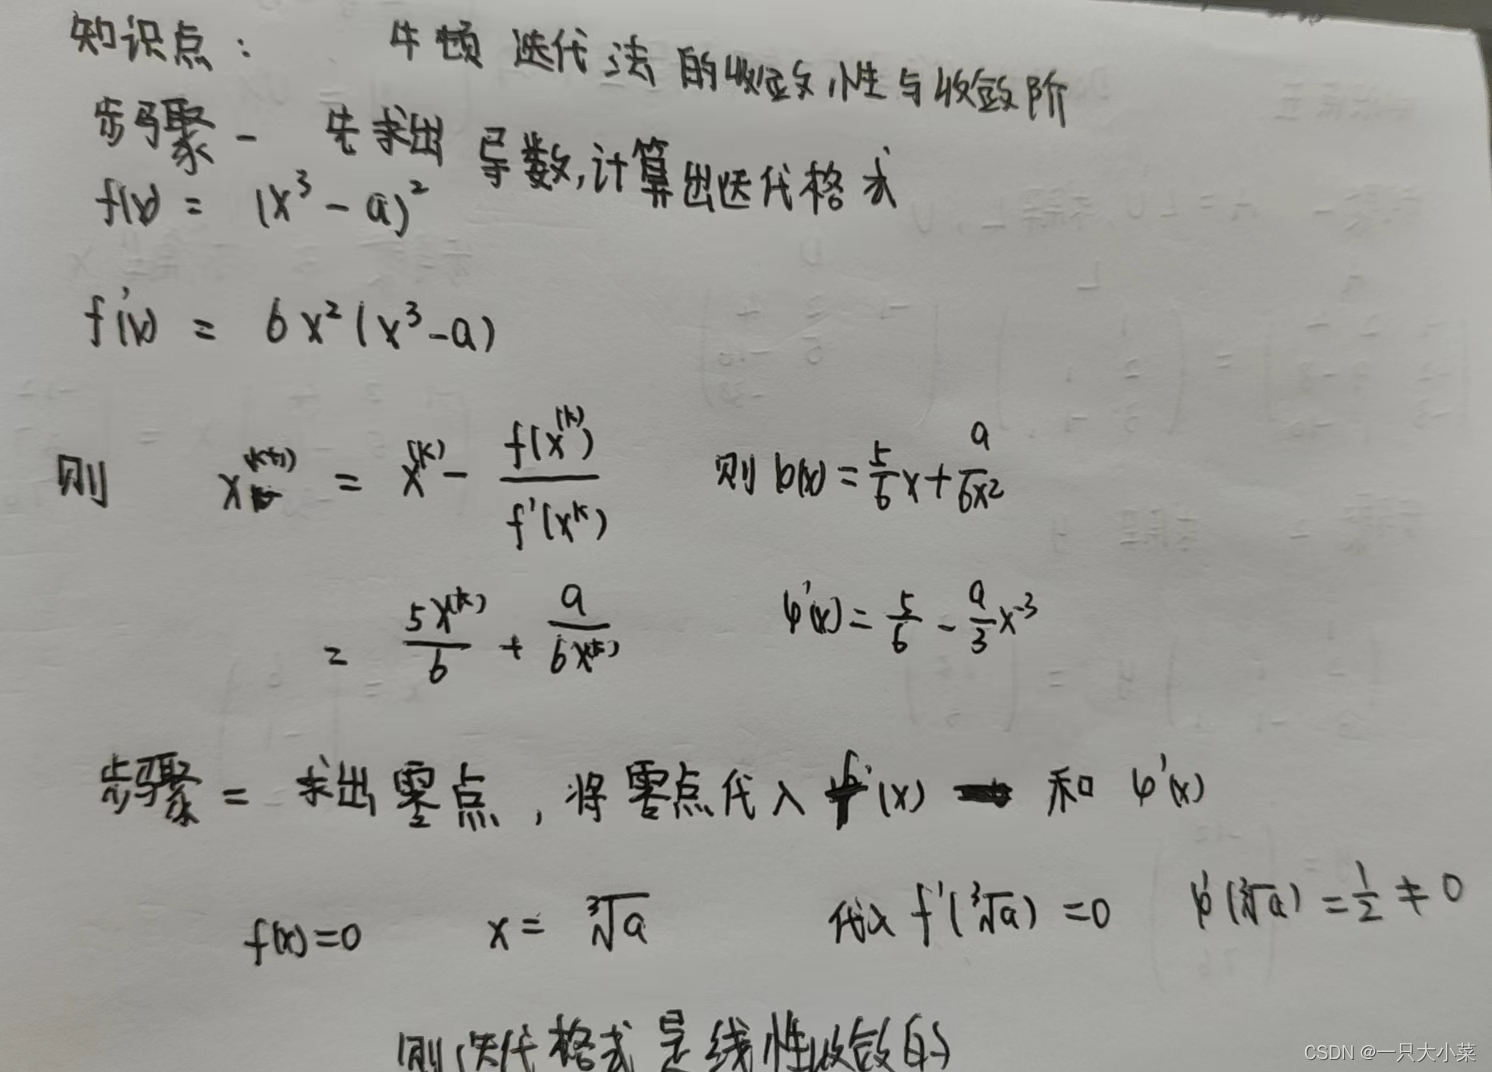 知识点： 牛顿迭代法的收敛性与收敛阶
步骤一 先求出导数,计算出迭代格式
f(x) = (x³ - a)²
f'(x) = 6x²(x³-a)
则 x^(k+1) = x^(k) - f(x^(k)) / f'(x^k) 则 φ(x) = 5/6 x + a/6x²
= 5x^(k)/6 + a/6x^(k) φ'(x) = 5/6 - a/3 x^-3
步骤二 求出零点，将零点代入 f'(x) 和 φ'(x)
f(x)=0 x = ³√a 代入 f'(³√a) =0 φ'(³√a) = 1/2 ≠ 0
则迭代格式是线性收敛的
CSDN @一只大小菜